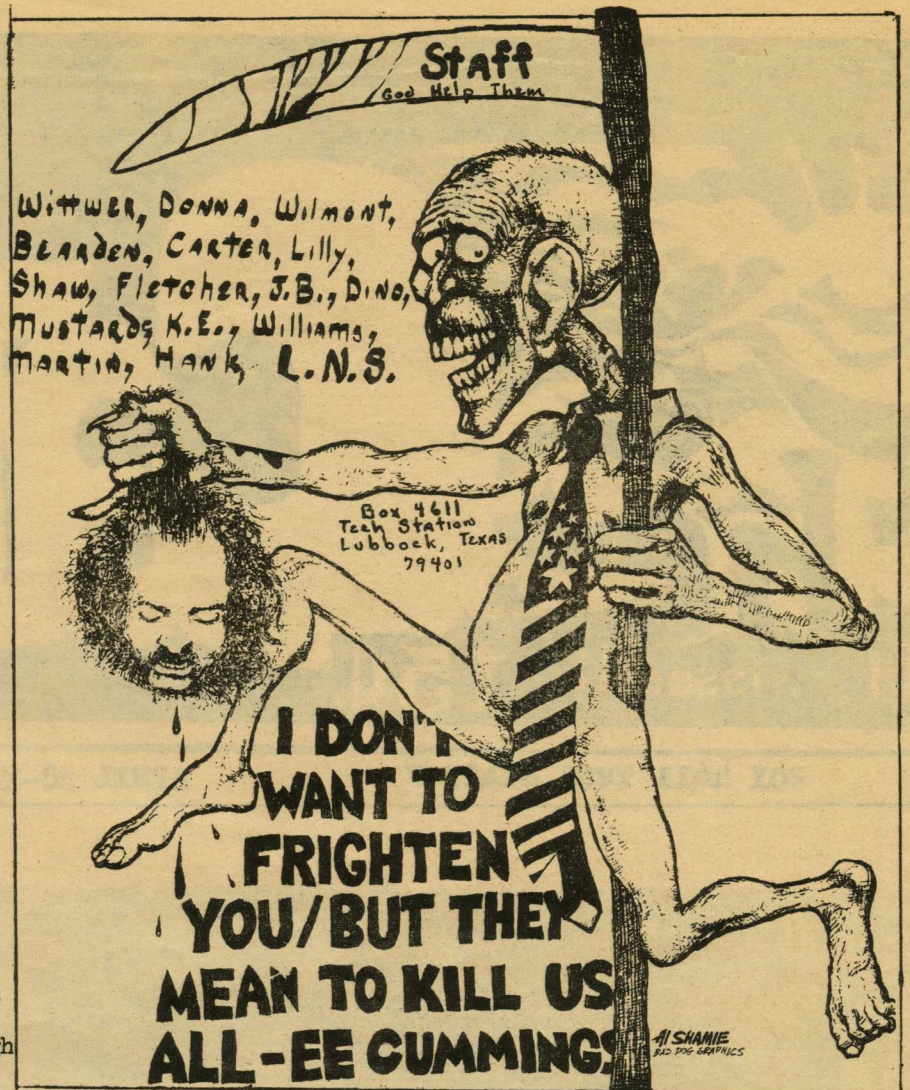 Staff
God Help Them
Wittwer, Donna, Wilmont,
Bearden, Carter, Lilly,
Shaw, Fletcher, J.B., Dino,
Mustard, K.E., Williams,
Martin, Hank, L.N.S.
Box 4611
Tech Station
Lubbock, Texas
79401
I DON'T
WANT TO
FRIGHTEN
YOU/BUT THEY
MEAN TO KILL US
ALL-EE CUMMINGS
Al SHAMIE
BAD DOG GRAPHICS